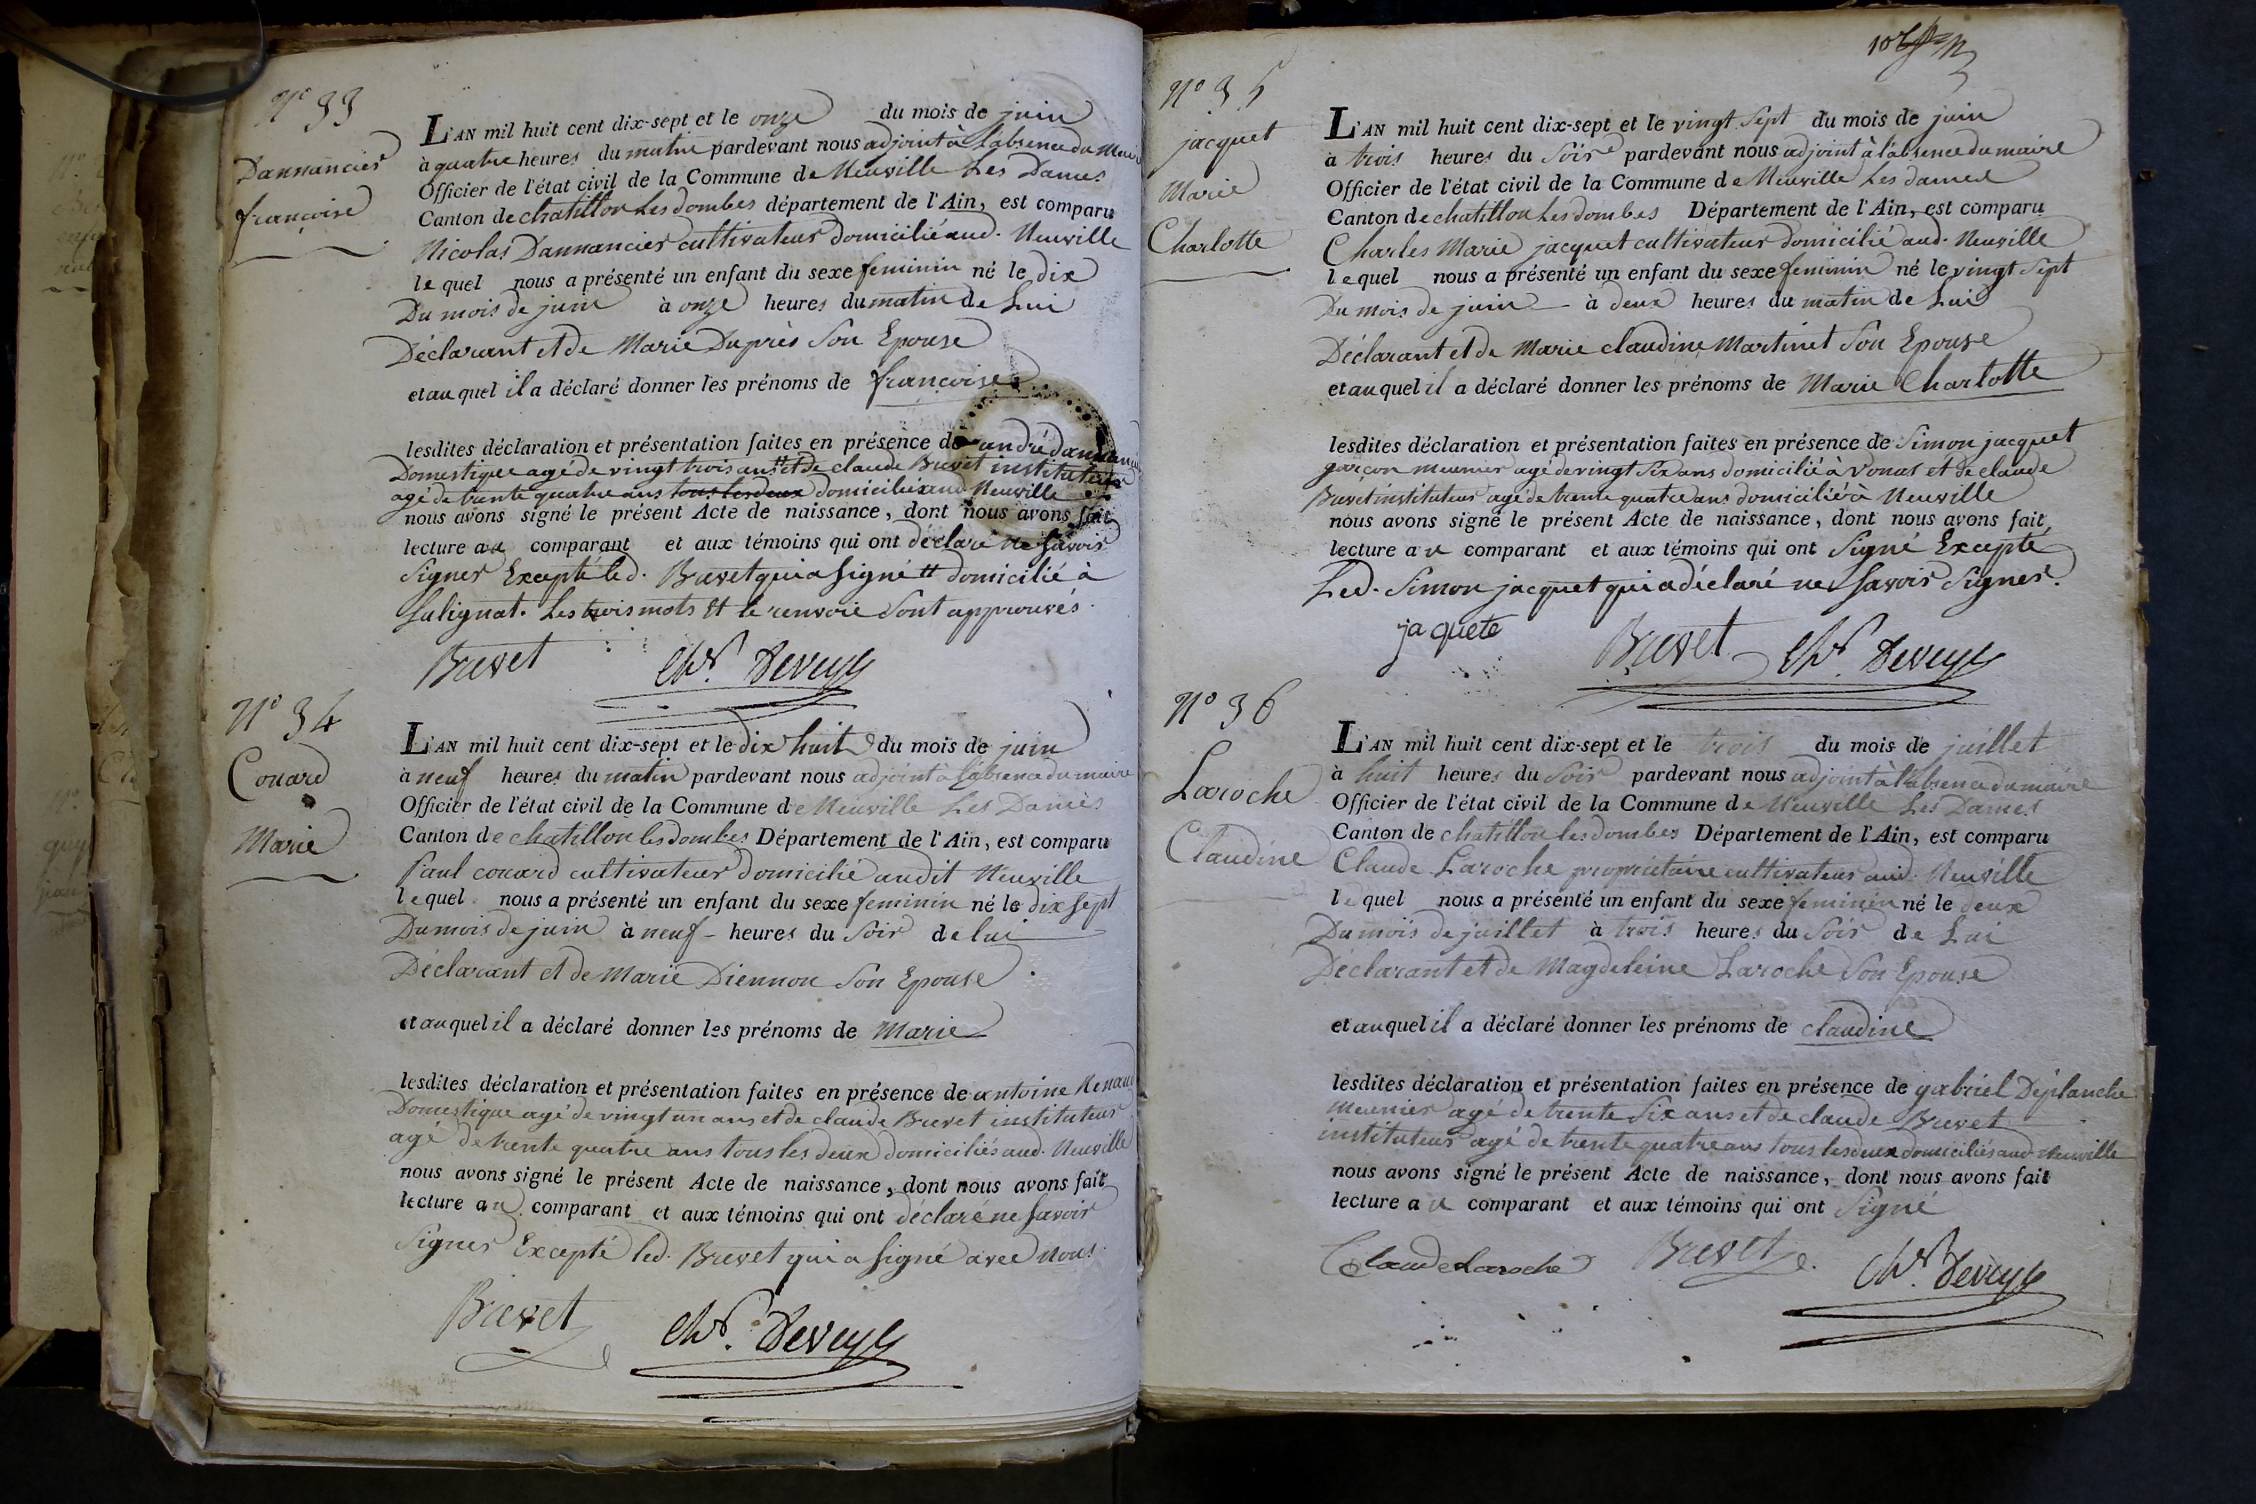 N° 33
Dannancier
françoise
L'AN mil huit cent dix-sept et le onze du mois de juin
à quatre heures du matin pardevant nous adjoint à l'absence du Maire
Officier de l'état civil de la Commune de Neuville Les Dames
Canton de chatillon les dombes département de l'Ain, est comparu
Nicolas Dannancier cultivateur domicilié aud. Neuville
lequel nous a présenté un enfant du sexe feminin né le dix
Du mois de juin à onze heures du matin de Lui
Déclarant et de Marie Duprès Son Epouse
et auquel il a déclaré donner les prénoms de françoise
lesdites déclaration et présentation faites en présence de andré dannancier
Domestique agé de vingt trois ans # et de claude Brevet instituteur
agé de trente quatre ans tous les deux domicilié aud Neuville
nous avons signé le présent Acte de naissance, dont nous avons fait
lecture au comparant et aux témoins qui ont déclaré ne Savoir
Signer Excepté led. Brevet qui a signé # domicilié à
Sulignat. Les trois mots et le renvoie Sont approuvés.
Brevet Chr. Deveyle
N° 34
Couard
Marie
L'AN mil huit cent dix-sept et le dix huit du mois de juin
à neuf heures du matin pardevant nous adjoint à l'absence du maire
Officier de l'état civil de la Commune de Neuville Les Dames
Canton de chatillon les dombes Département de l'Ain, est comparu
Paul couard cultivateur domicilié audit Neuville
lequel nous a présenté un enfant du sexe feminin né le dix sept
Du mois de juin à neuf heures du Soir de lui
Déclarant et de Marie Diennon Son Epouse
et auquel il a déclaré donner les prénoms de Marie
lesdites déclaration et présentation faites en présence de antoine Renaud
Domestique agé de vingt un ans et de claude Brevet instituteur
agé de trente quatre ans tous les deux domiciliés aud. Neuville
nous avons signé le présent Acte de naissance, dont nous avons fait
lecture au comparant et aux témoins qui ont déclaré ne Savoir
Signer Excepté led. Brevet qui a signé avec Nous.
Brevet Chr. Deveyle
N° 35
jacquet
Marie
Charlotte
L'AN mil huit cent dix-sept et le vingt Sept du mois de juin
à trois heures du Soir pardevant nous adjoint à l'absence du maire
Officier de l'état civil de la Commune de Neuville Les dames
Canton de chatillon Les dombes Département de l'Ain, est comparu
Charles Marie jacquet cultivateur domicilié aud. Neuville
lequel nous a présenté un enfant du sexe feminin né le vingt Sept
Du mois de juin à deux heures du matin de Lui
Déclarant et de Marie claudine Martinet Son Epouse
et auquel il a déclaré donner les prénoms de Marie Charlotte
lesdites déclaration et présentation faites en présence de Simon jacquet
garçon meunier agé de vingt Six ans domicilié à Vonas et de claude
Brevet instituteur agé de trente quatre ans domicilié à Neuville
nous avons signé le présent Acte de naissance, dont nous avons fait
lecture au comparant et aux témoins qui ont Signé Excepté
Led. Simon jacquet qui a déclaré ne Savoir Signer.
jaquete Brevet Chr. Deveyle
N° 36
Laroche
Claudine
L'AN mil huit cent dix-sept et le trois du mois de juillet
à huit heures du Soir pardevant nous adjoint à l'absence du maire
Officier de l'état civil de la Commune de Neuville Les Dames
Canton de chatillon les dombes Département de l'Ain, est comparu
Claude Laroche propriétaire cultivateur aud. Neuville
lequel nous a présenté un enfant du sexe feminin né le deux
Du mois de juillet à trois heures du Soir de Lui
Déclarant et de Magdeleine Laroche Son Epouse
et auquel il a déclaré donner les prénoms de claudine
lesdites déclaration et présentation faites en présence de gabriel Déplanche
meunier agé de trente Six ans et de claude Brevet
instituteur agé de trente quatre ans tous les deux domiciliés aud Neuville
nous avons signé le présent Acte de naissance, dont nous avons fait
lecture au comparant et aux témoins qui ont Signé
Claude Laroche Brevet Chr. Deveyle